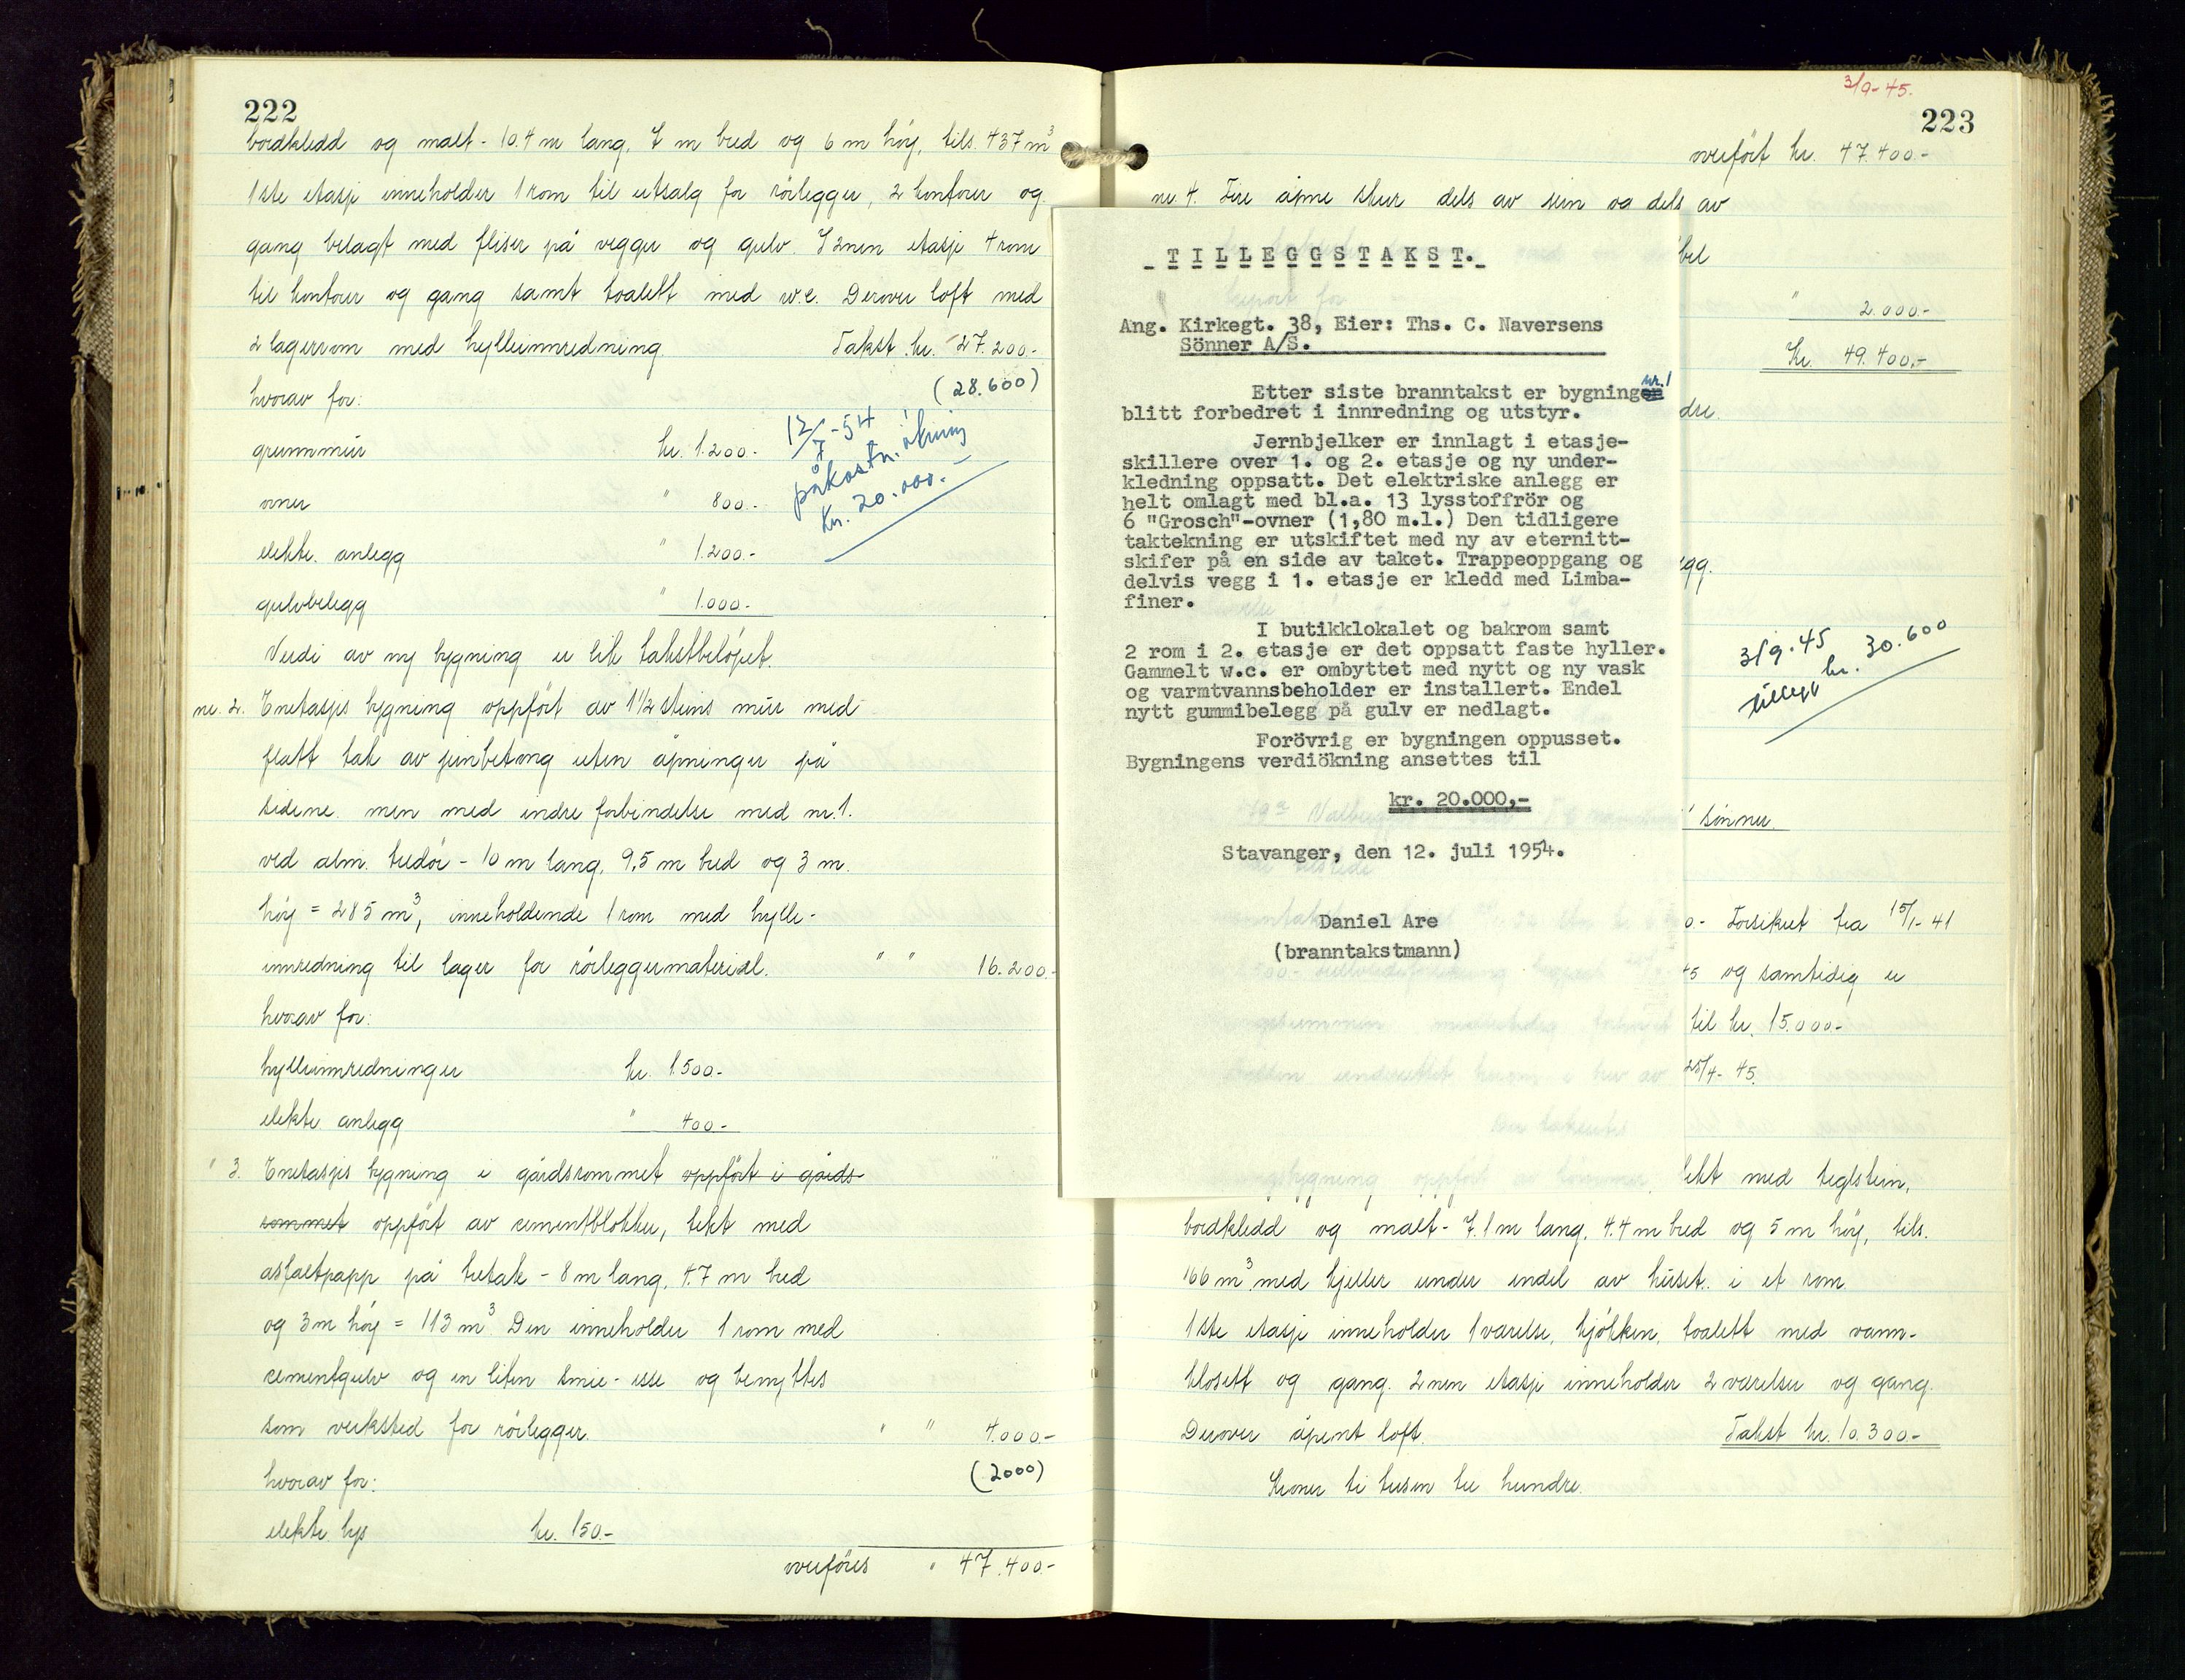 222
bordkledd og malt - 10.4 m lang, 7 m bred og 6 m höy, tils. 437 m³
1ste etasje inneholder 1 rom til utsalg for rörlegger, 2 kontorer og
gang belagt med fliser på vegger og gulv. I 2nen etasje 4 rom
til kontorer og gang samt toalett med w.c. Derover loft med
2 lagerrom med hylleinnredning. Takst kr. 27.200.-
hvorav for: (28.600)
grunnmür kr. 1.200.-
ovner " 800.-
elektr. anlegg " 1.200.-
gulvbelegg " 1.000.-
12/7-54
påkostn. ökning
kr. 20.000.-
Verdi av ny bygning er lik takstbelöpet.
nr. 2. Enetasjes bygning oppfört av 1½ steins mür med
flatt tak av jernbetong uten åpninger på
sidene. men med indre forbindelse med nr. 1.
ved alm. tredör - 10 m lang, 9,5 m bred og 3 m.
höy = 285 m³, inneholdende 1 rom med hylle-
innredning til lager for rörleggermaterial. " " 16.200.-
hvorav for:
hylleinnredninger kr. 1.500.-
elektr anlegg " 400.-
" 3. Enetasjes bygning i gårdsrommet oppfört i gårds-
rommet oppfört av cementblokker, tekt med
asfaltpapp på tretak - 8 m lang, 4.7 m bred
og 3 m höy = 113 m³. Den inneholder 1 rom med
cementgulv og en liten smie-esse og benyttes
som verksted for rörlegger. " " 4.000.-
hvorav for: (2000)
elektr. lys kr. 150.-
overföres " 47.400.-
3/9-45.
223
overfört kr. 47.400.-
nr. 4. Fire åpne skur dels av sein og dels av
bel
" 2.000.-
Kr. 49.400,-
dre.
egg.
3/9.45
tillegg kr. 30.600
T I L L E G G S T A K S T.
Ang. Kirkegt. 38, Eier: Ths. C. Naversens
Sönner A/S.
Etter siste branntakst er bygningen nr. 1
blitt forbedret i innredning og utstyr.
Jernbjelker er innlagt i etasje-
skillere over 1. og 2. etasje og ny under-
kledning oppsatt. Det elektriske anlegg er
helt omlagt med bl.a. 13 lysstoffrör og
6 "Grosch"-ovner (1,80 m.l.) Den tidligere
taktekning er utskiftet med ny av eternitt-
skifer på en side av taket. Trappeoppgang og
delvis vegg i 1. etasje er kledd med Limba-
finer.
I butikklokalet og bakrom samt
2 rom i 2. etasje er det oppsatt faste hyller.
Gammelt w.c. er ombyttet med nytt og ny vask
og varmtvannsbeholder er installert. Endel
nytt gummibelegg på gulv er nedlagt.
Forövrig er bygningen oppusset.
Bygningens verdiökning ansettes til
kr. 20.000,-
Stavanger, den 12. juli 1954.
Daniel Are
(branntakstmann)
sönner.
0.- Forsikret fra 15/1-41
45 og samtidig er
til kr. 15.000.-
25/4-45.
tekt med teglstein,
bordkledd og malt - 7.1 m lang, 4.4 m bred og 5 m höy, tils.
166 m³, med kjeller under endel av hüset. i et rom.
1ste etasje inneholder 1 værelse, kjökken, toalett med vann-
klosett og gang. 2nen etasje inneholder 2 værelser og gang.
Derover åpent loft. Takst kr. 10.300.-
Kroner ti tusen tre hundre.